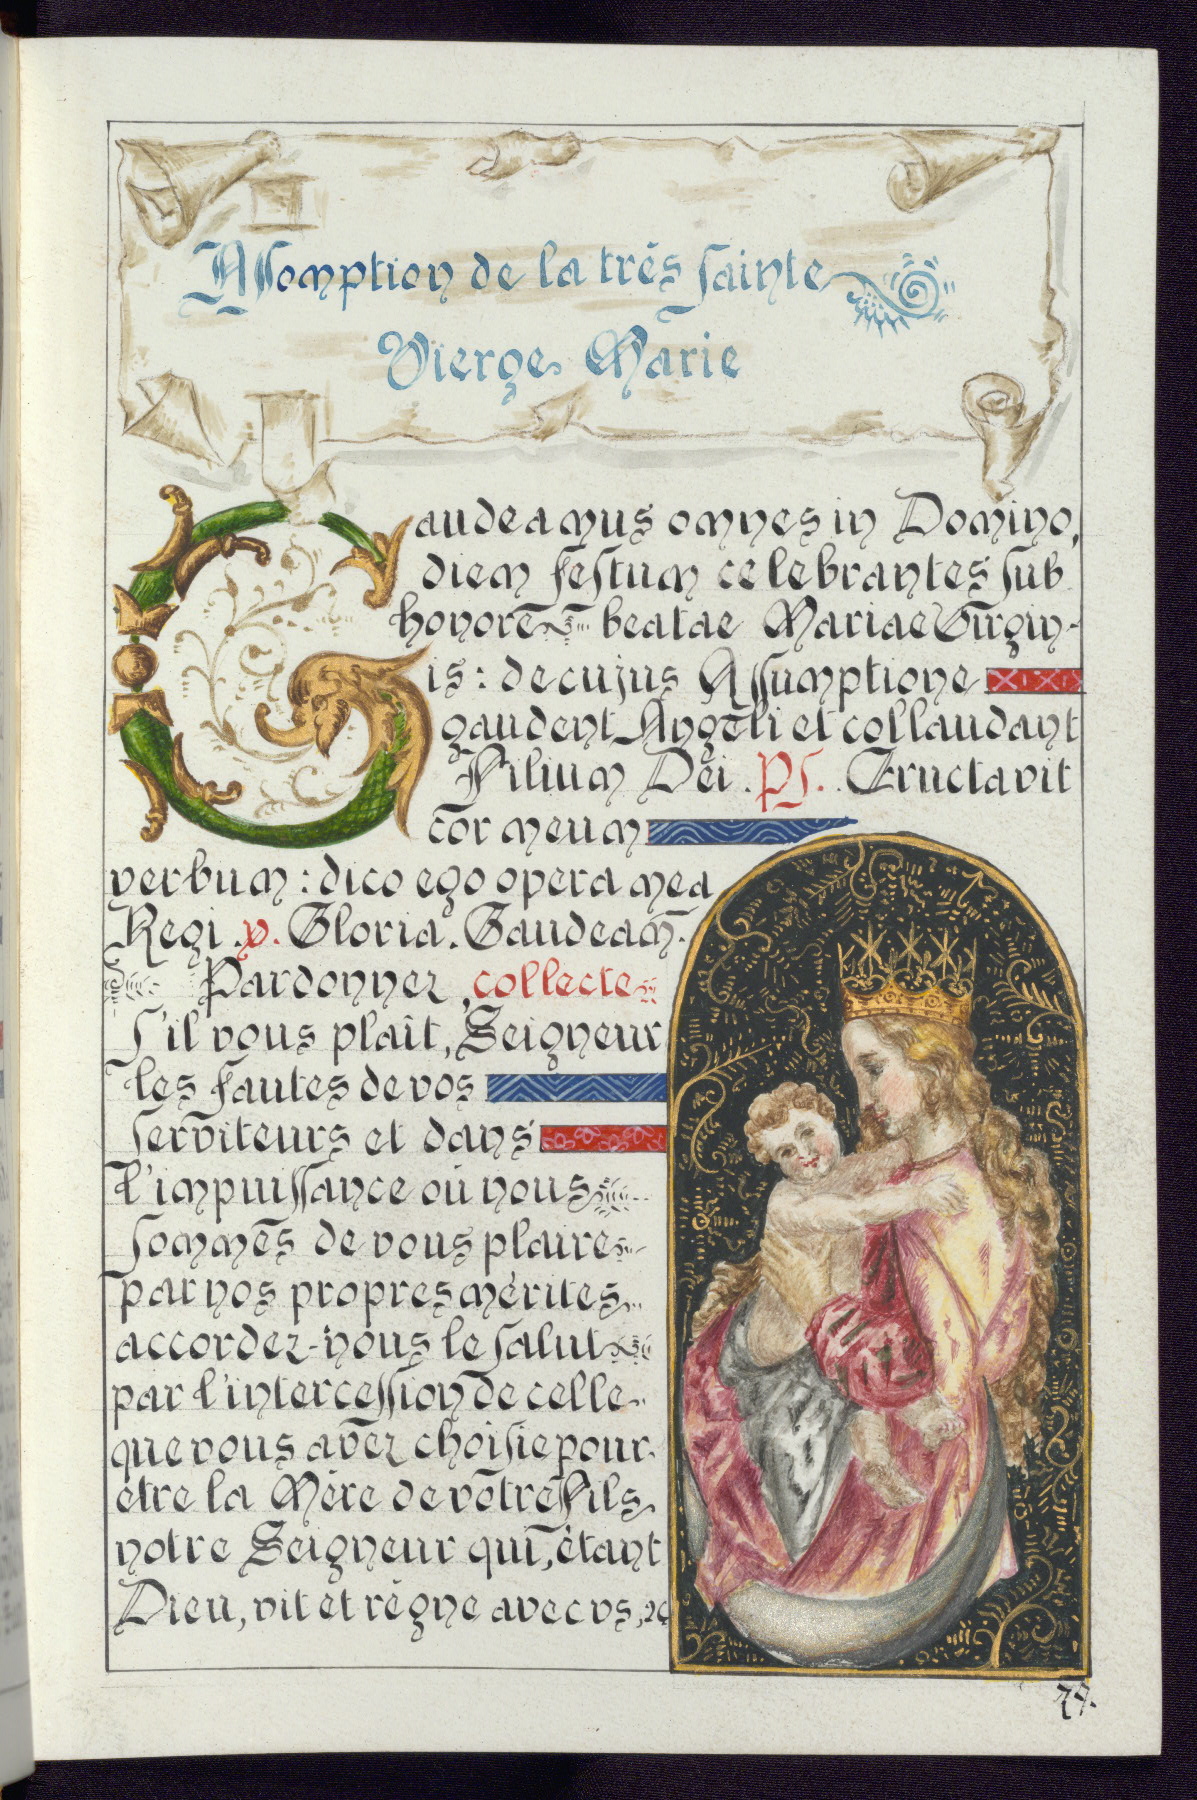 Assomption de la très sainte
Vierge Marie
Gaudeamus omnes in Domino,
diem festum celebrantes sub
honore beatae Mariae Virgin-
is: de cujus Assumptione
gaudent Angeli et collaudant
Filium Dei. Ps. Eructavit
cor meum
verbum: dico ego opera mea
Regi. v. Gloria. Gaudeam.
Pardonnez, collecte
S'il vous plaît, Seigneur
les fautes de vos
serviteurs et dans
l'impuissance où nous
sommes de vous plaire
par nos propres mérites
accordez-nous le salut
par l'intercession de celle
que vous avez choisie pour
être la Mère de votre Fils
notre Seigneur qui, étant
Dieu, vit et règne avec vs,